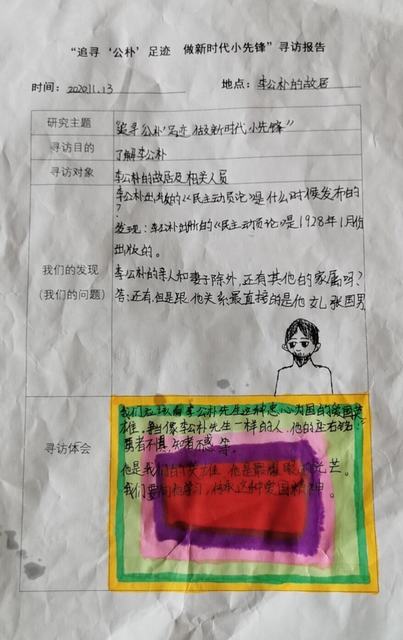 “追寻‘公朴’足迹 做新时代小先锋”寻访报告
时间：2020.11.13 地点：李公朴的故居
研究主题 “追寻‘公朴’足迹 做新时代小先锋”
寻访目的 了解李公朴
寻访对象 李公朴的故居及相关人员
我们的发现
（我们的问题）
李公朴出版的《民主动员论》是什么时候发布的
？
发现：李公朴出版的《民主动员论》是1928年1月份
出版的。
李公朴的亲人和妻子除外，还有其他的家属吗？
答：还有，但是跟他关系最直接的是他女儿张国男
寻访体会
我们应该有李公朴先生这种忠心为国的爱国英
雄，当像李公朴先生一样的人，他的座右铭：
勇者不惧，知者不惑等。
他是我们的英雄，他是最耀眼的光芒。
我们要向他学习，传承这种爱国精神。